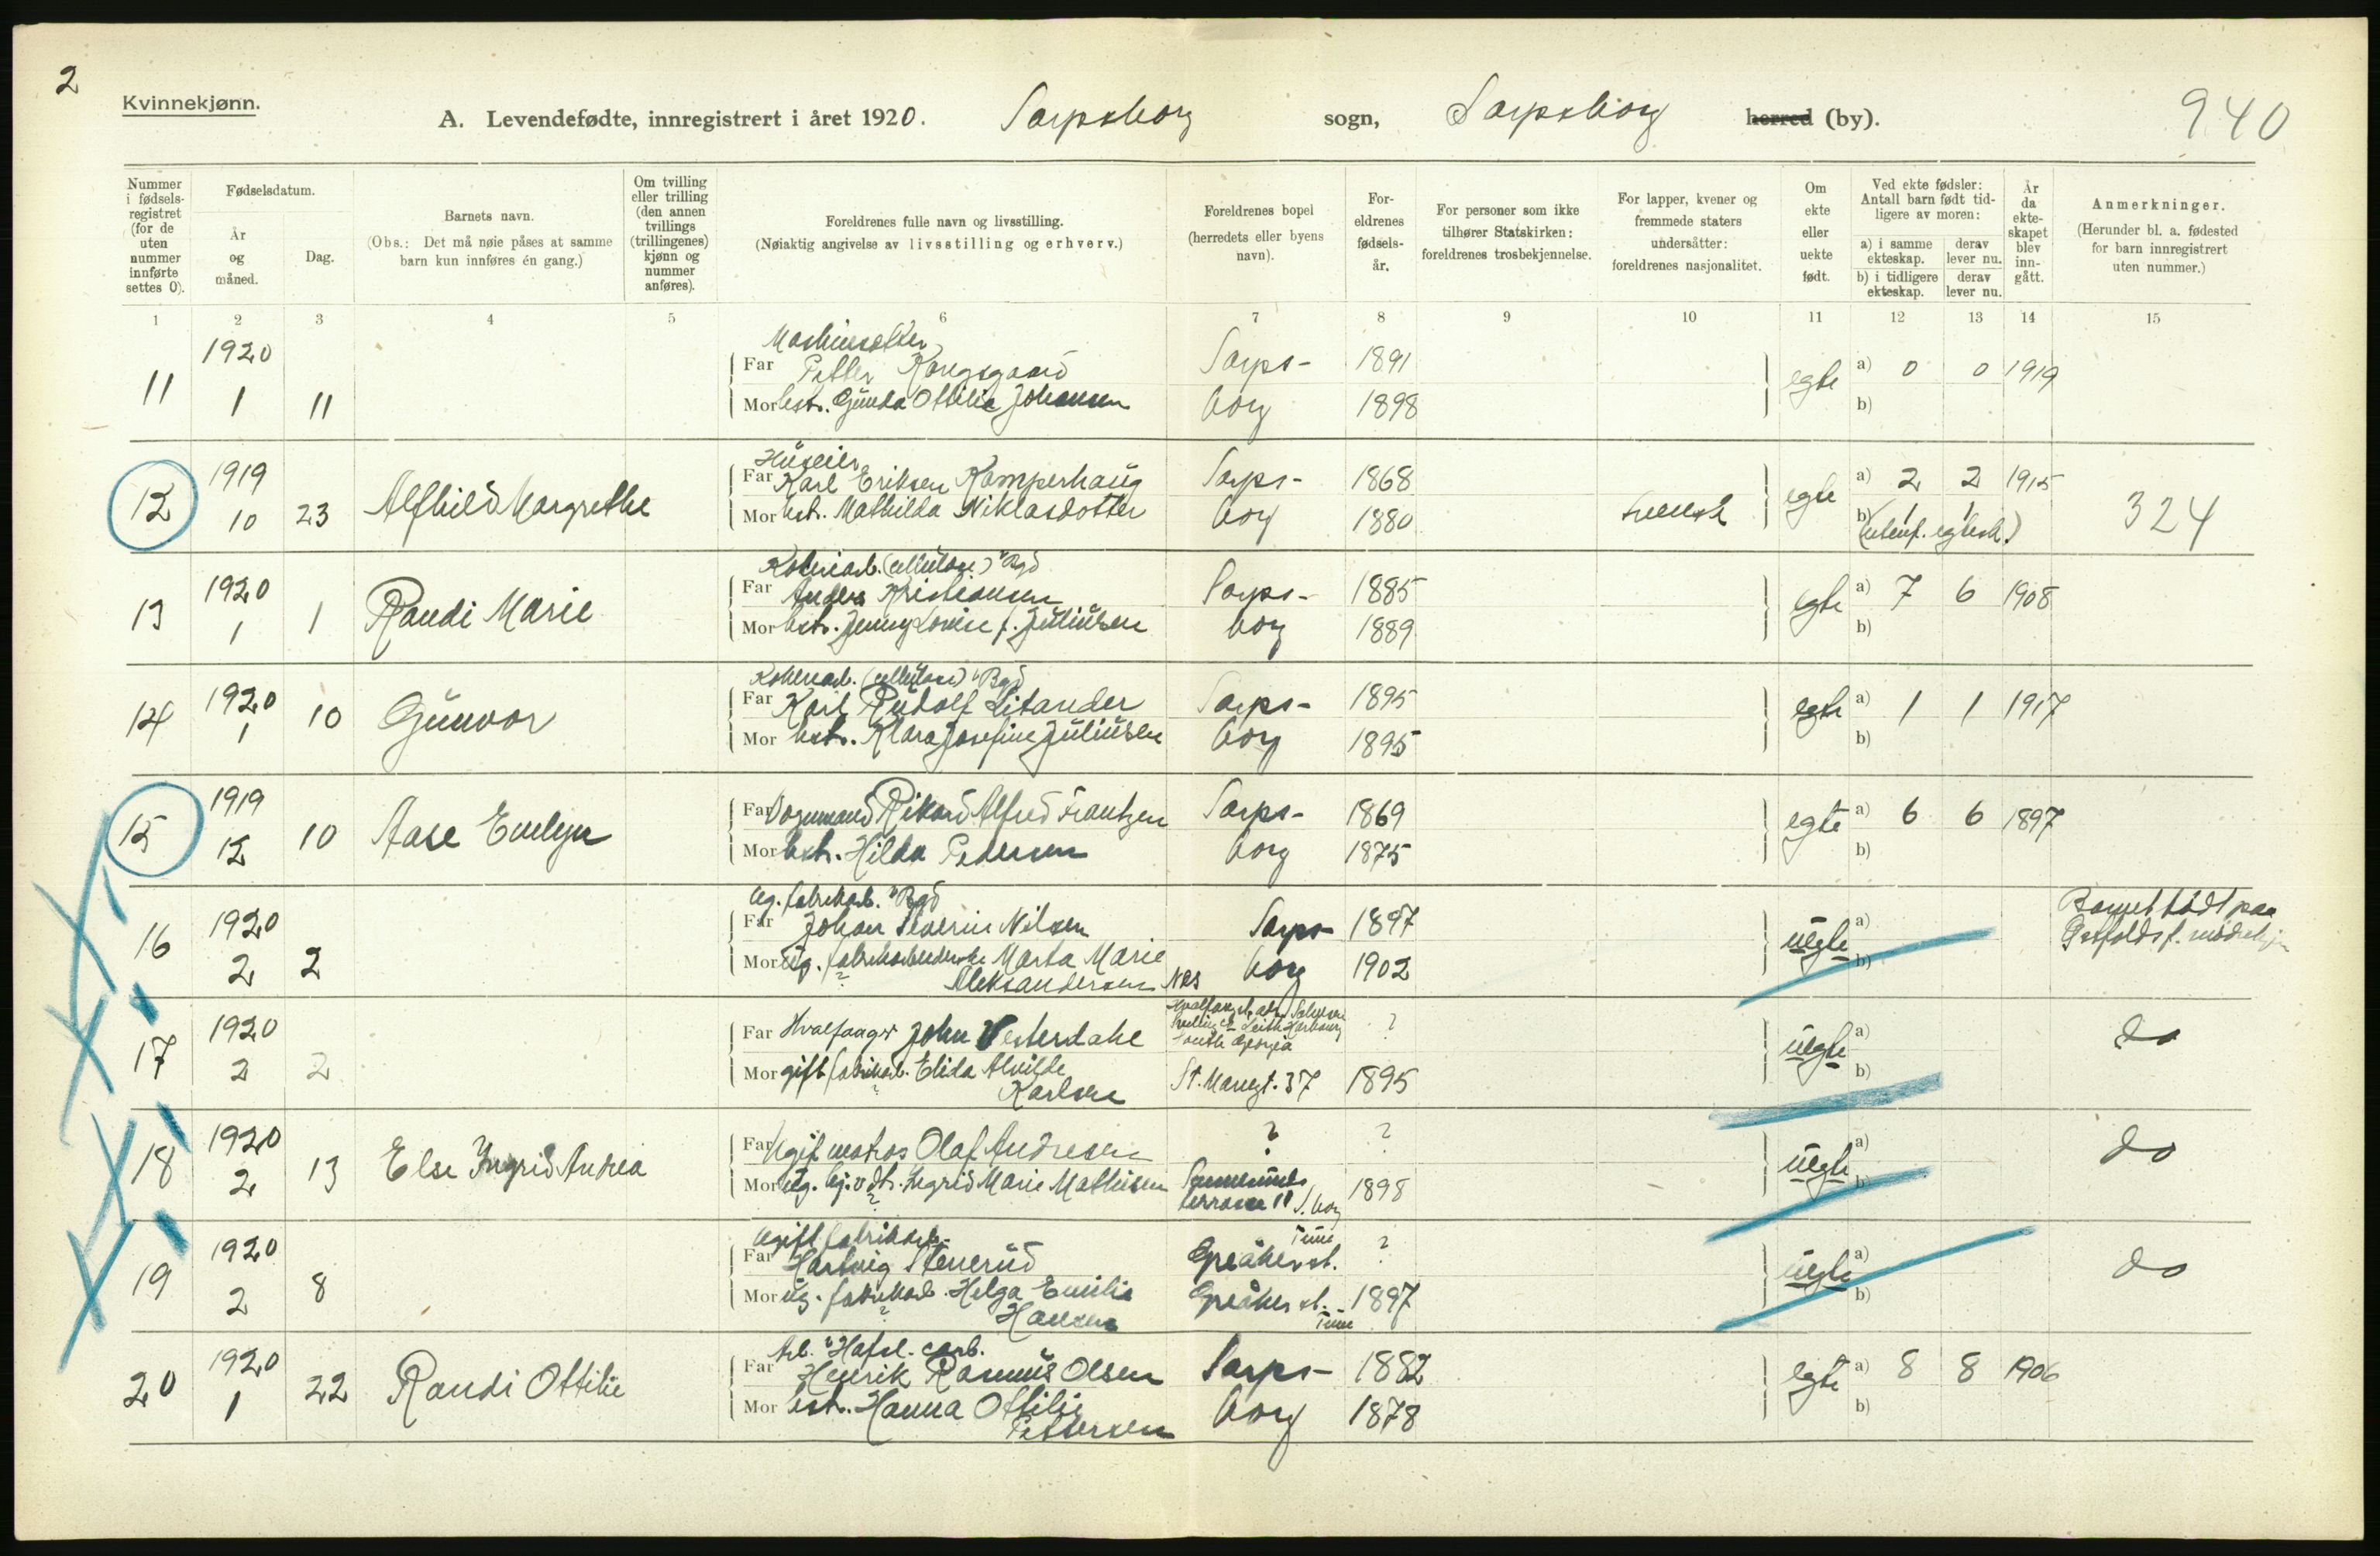 2
Kvinnekjønn.
A. Levendefødte, innregistrert i året 1920. Sarpsborg sogn, Sarpsborg herred (by). 940
Nummer i fødsels-registret (for de uten nummer innførte settes 0).
Fødselsdatum.
År og måned.
Dag.
Barnets navn.
(Obs.: Det må nøie påses at samme barn kun innføres én gang.)
Om tvilling eller trilling (den annen tvillings (trillingenes) kjønn og nummer anføres).
Foreldrenes fulle navn og livsstilling.
(Nøiaktig angivelse av livsstilling og erhverv.)
Foreldrenes bopel (herredets eller byens navn).
For-eldrenes fødsels-år.
For personer som ikke tilhører Statskirken: foreldrenes trosbekjennelse.
For lapper, kvener og fremmede staters undersåtter: foreldrenes nasjonalitet.
Om ekte eller uekte født.
Ved ekte fødsler: Antall barn født tid-ligere av moren:
a) i samme ekteskap.
derav lever nu.
b) i tidligere ekteskap.
derav lever nu.
År da ekte-skapet blev inn-gått.
Anmerkninger.
(Herunder bl. a. fødested for barn innregistrert uten nummer.)
1 2 3 4 5 6 7 8 9 10 11 12 13 14 15
Maskinsetter
11 1920 Far Petter Kongsgaard Sarps- 1891 egte a) 0 0 1919
1 11 Mor hstr. Gunda Ottilia Johansen borg 1898 b)
Huseier
12 1919 Far Karl Eriksen Kamperhaug Sarps- 1868 egte a) 2 2 1915
10 23 Alfhild Margrethe Mor hstr. Mathilda Niklasdotter borg 1880 svensk b) 1 1 324
(utenf. egtesk.)
Kokeriarb. (cellulose) "Bgd
13 1920 Far Anders Kristiansen Sarps- 1885 egte a) 7 6 1908
1 1 Randi Marie Mor hstr. Jenny Lovise f. Juliussen borg 1889 b)
Kokeriarb. (cellulose) "Bgd
14 1920 Far Karl Rudolf Litander Sarps- 1895 egte a) 1 1 1917
1 10 Gunvor Mor hstr. Klara Josefine Juliussen borg 1895 b)
15 1919 Far Vognmand Rikard Alfred Frantzen Sarps- 1869 egte a) 6 6 1897
12 10 Aase Evelyn Mor hstr. Hilda Pedersen borg 1875 b)
ug. fabrikarb. "Bgd
16 1920 Far Johan Severin Nilsen Sarps- 1897 uegte a) Barnet født paa
2 2 Mor ug. fabrikarbeiderske Marta Marie borg 1902 b) Østfolds f. mødrehj
? Aleksandersen Nes
17 1920 Far Hvalfanger John Vesterdahl Leith Harbour South Georgia ? uegte a) do
2 2 Mor gift fabrikarb. Elida Alvilde St. Mariegt. 37 1895 b)
? Karlsen
18 1920 Far Ugift matros Olaf Andresen ? ? uegte a) do
2 13 Else Ingrid Andrea Mor ug. Ingrid Marie Mathisen terrasse 11 S.borg 1898 b)
?
ugift fabrikarb. Tune
19 1920 Far Hartvig Stenerud Greåker st. ? uegte a) do
2 8 Mor ug. fabrikarb. Helga Emilie Greåker st. 1897 b)
? Hansen Tune
Arb. "Hafsl. carb.
20 1920 Far Henrik Rasmus Olsen Sarps- 1882 egte a) 8 8 1906
1 22 Randi Ottilie Mor hstr. Hanna Ottilie borg 1878 b)
Pettersen